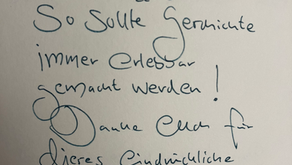 So sollte Geschichte
immer erlebbar
gemacht werden!
Danke euch für
dieses eindrückliche